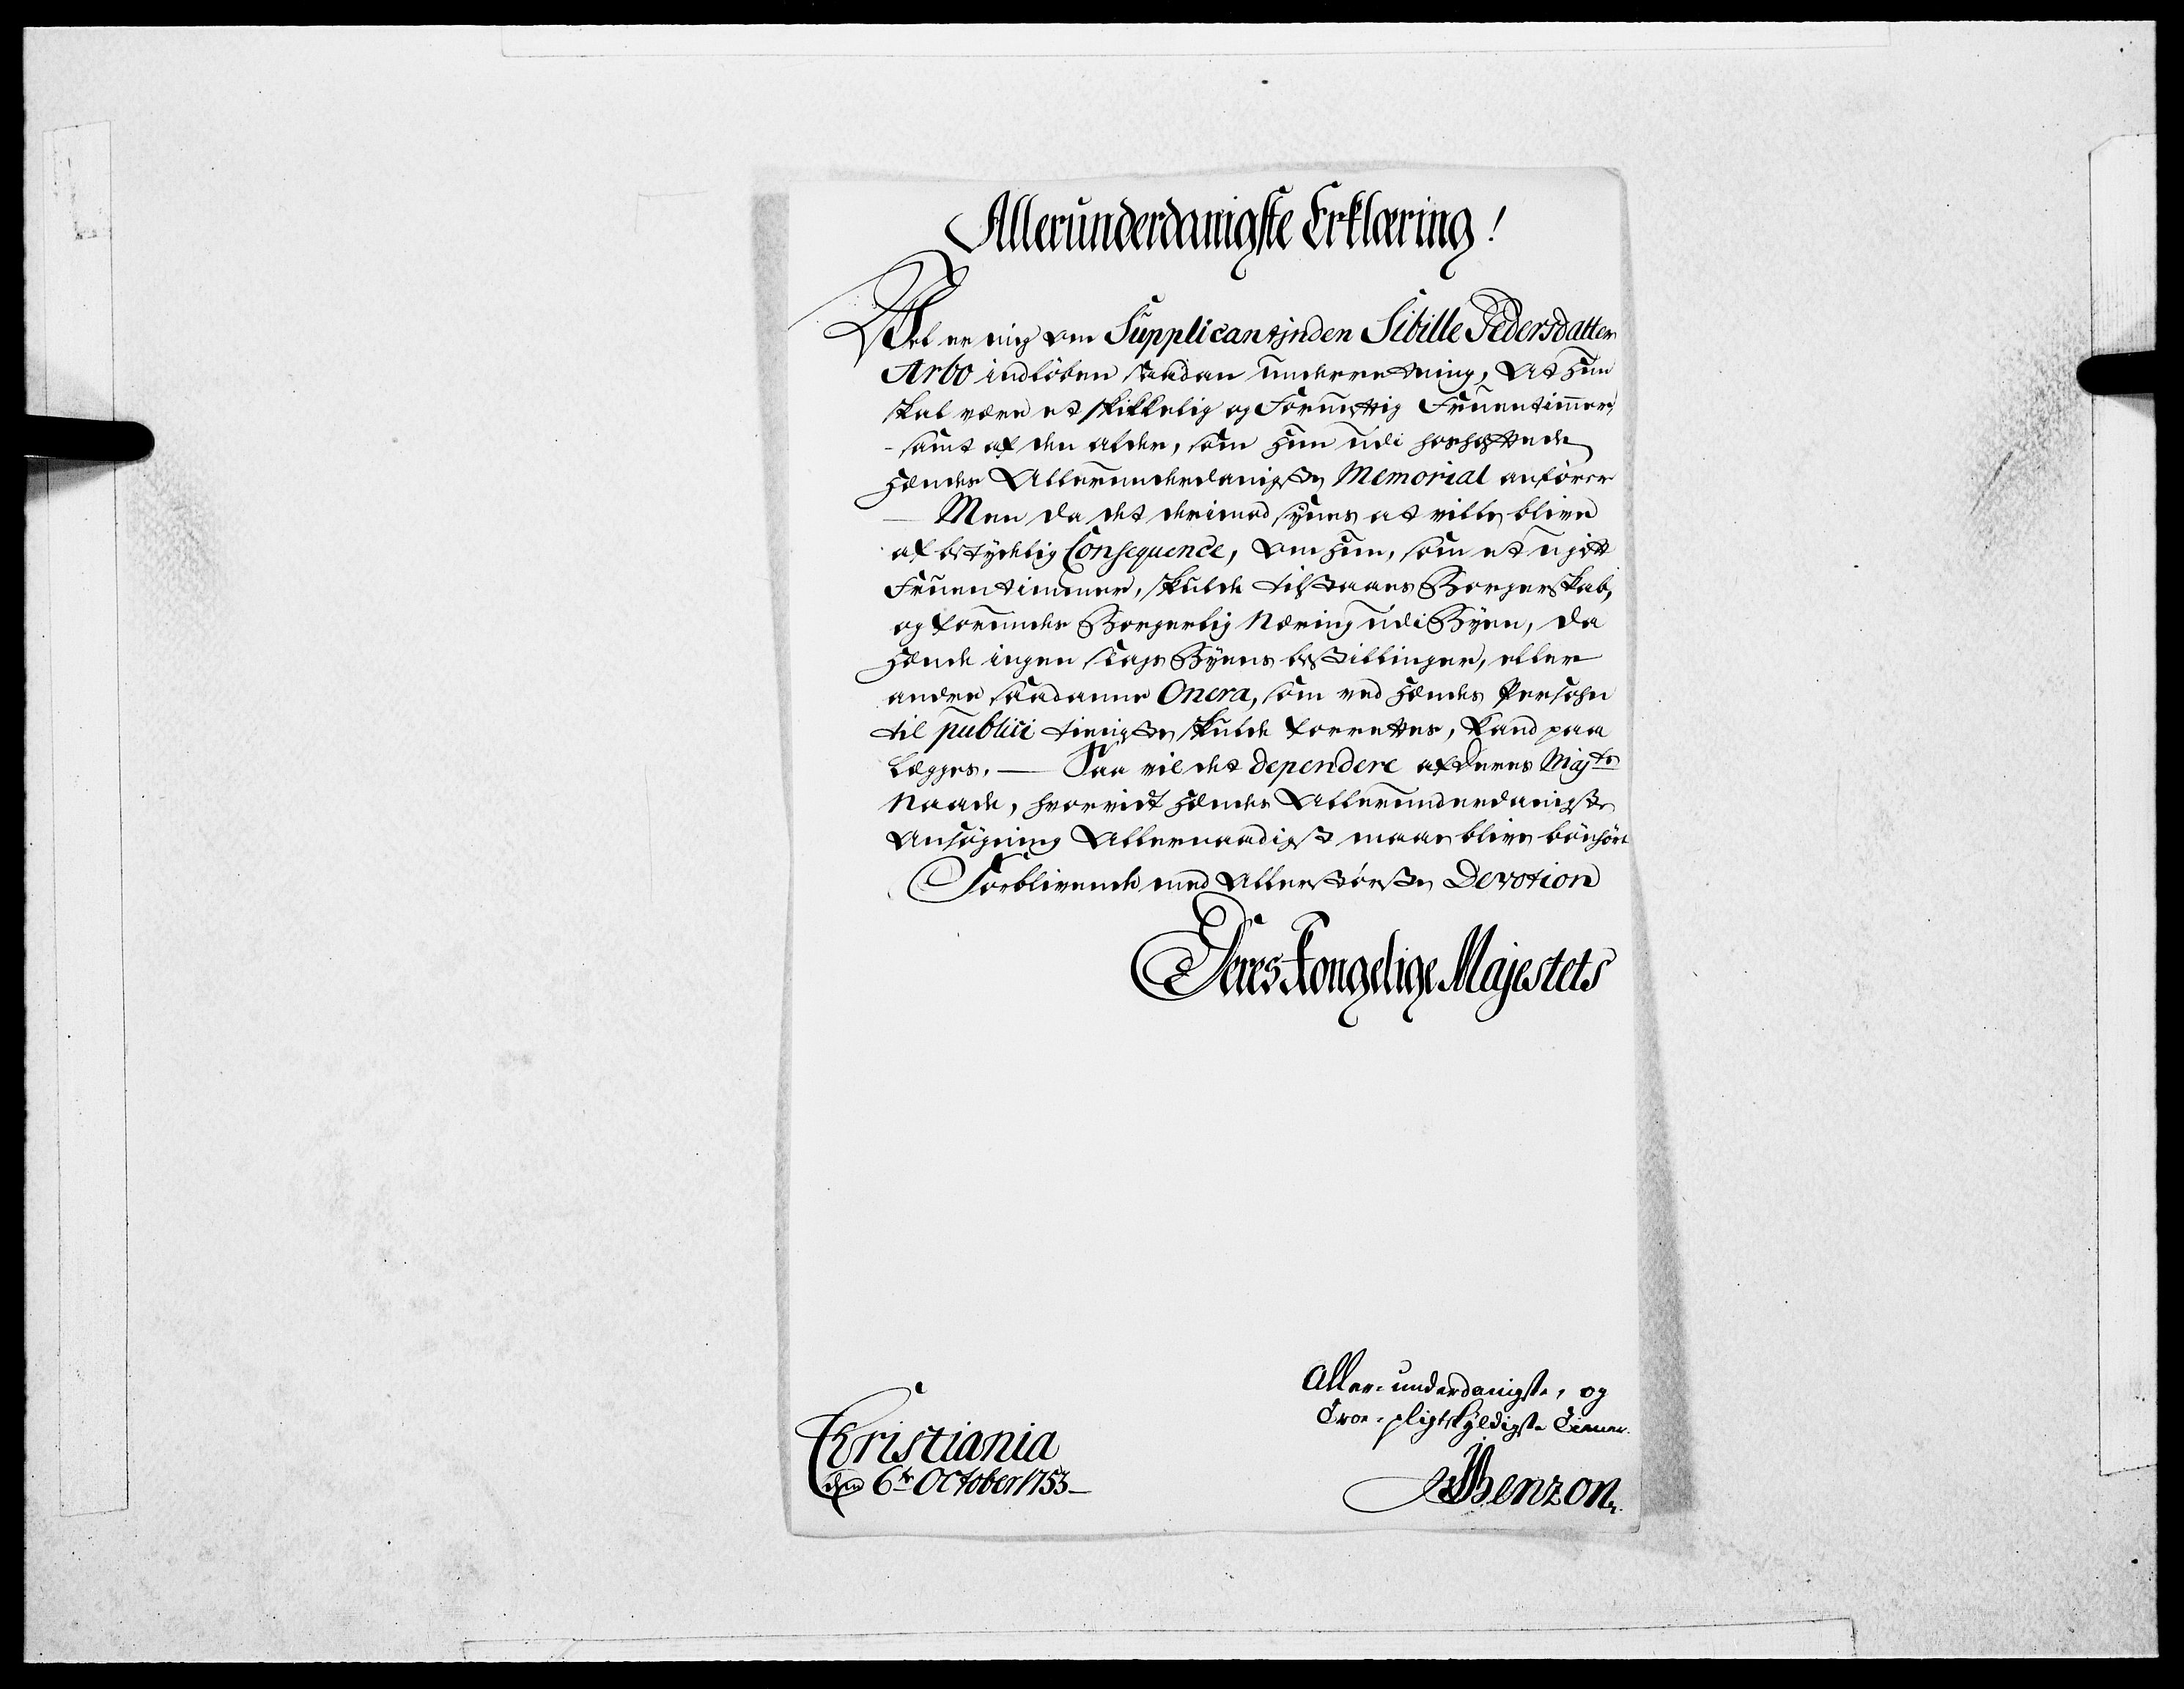 Allerunderdanigste Erklæring!
Vel er mig om Supplicantinden Sibille Pedersdatter
Arbo indløben saadan underretning, At hun
skal være et skikkelig og Fornuftig Fruentimmer,
- samt af den alder, som hun udi hoshæftede
hændes Allerunderdanigste Memorial anfører
— Men da det derimod synes at ville blive
af betydelig Consequence, om hun, som et ugift
Fruentimmer, skulde tilstaaes Borgerskab,
og forundes Borgerlig Næring udi Byen, da
hænde ingen slags Byens bestillinger, eller
andre saadanne Onera, som ved hændes Persohn
til publici tieniste skulde forrettes, kand paa
lægges. — Saa vil det dependere af Deres Majts
Naade, hvorvidt hændes Allerunderdanigste
Ansøgning Allernaadigst maae blive bønhørt
Forblivende med Allerstørste Devotion
Deres Kongelige Majestets
Aller-underdanigste, og
Troe-pligtskyldigste Tiener.
Christiania
den 6te October 1753 —
Benzon.